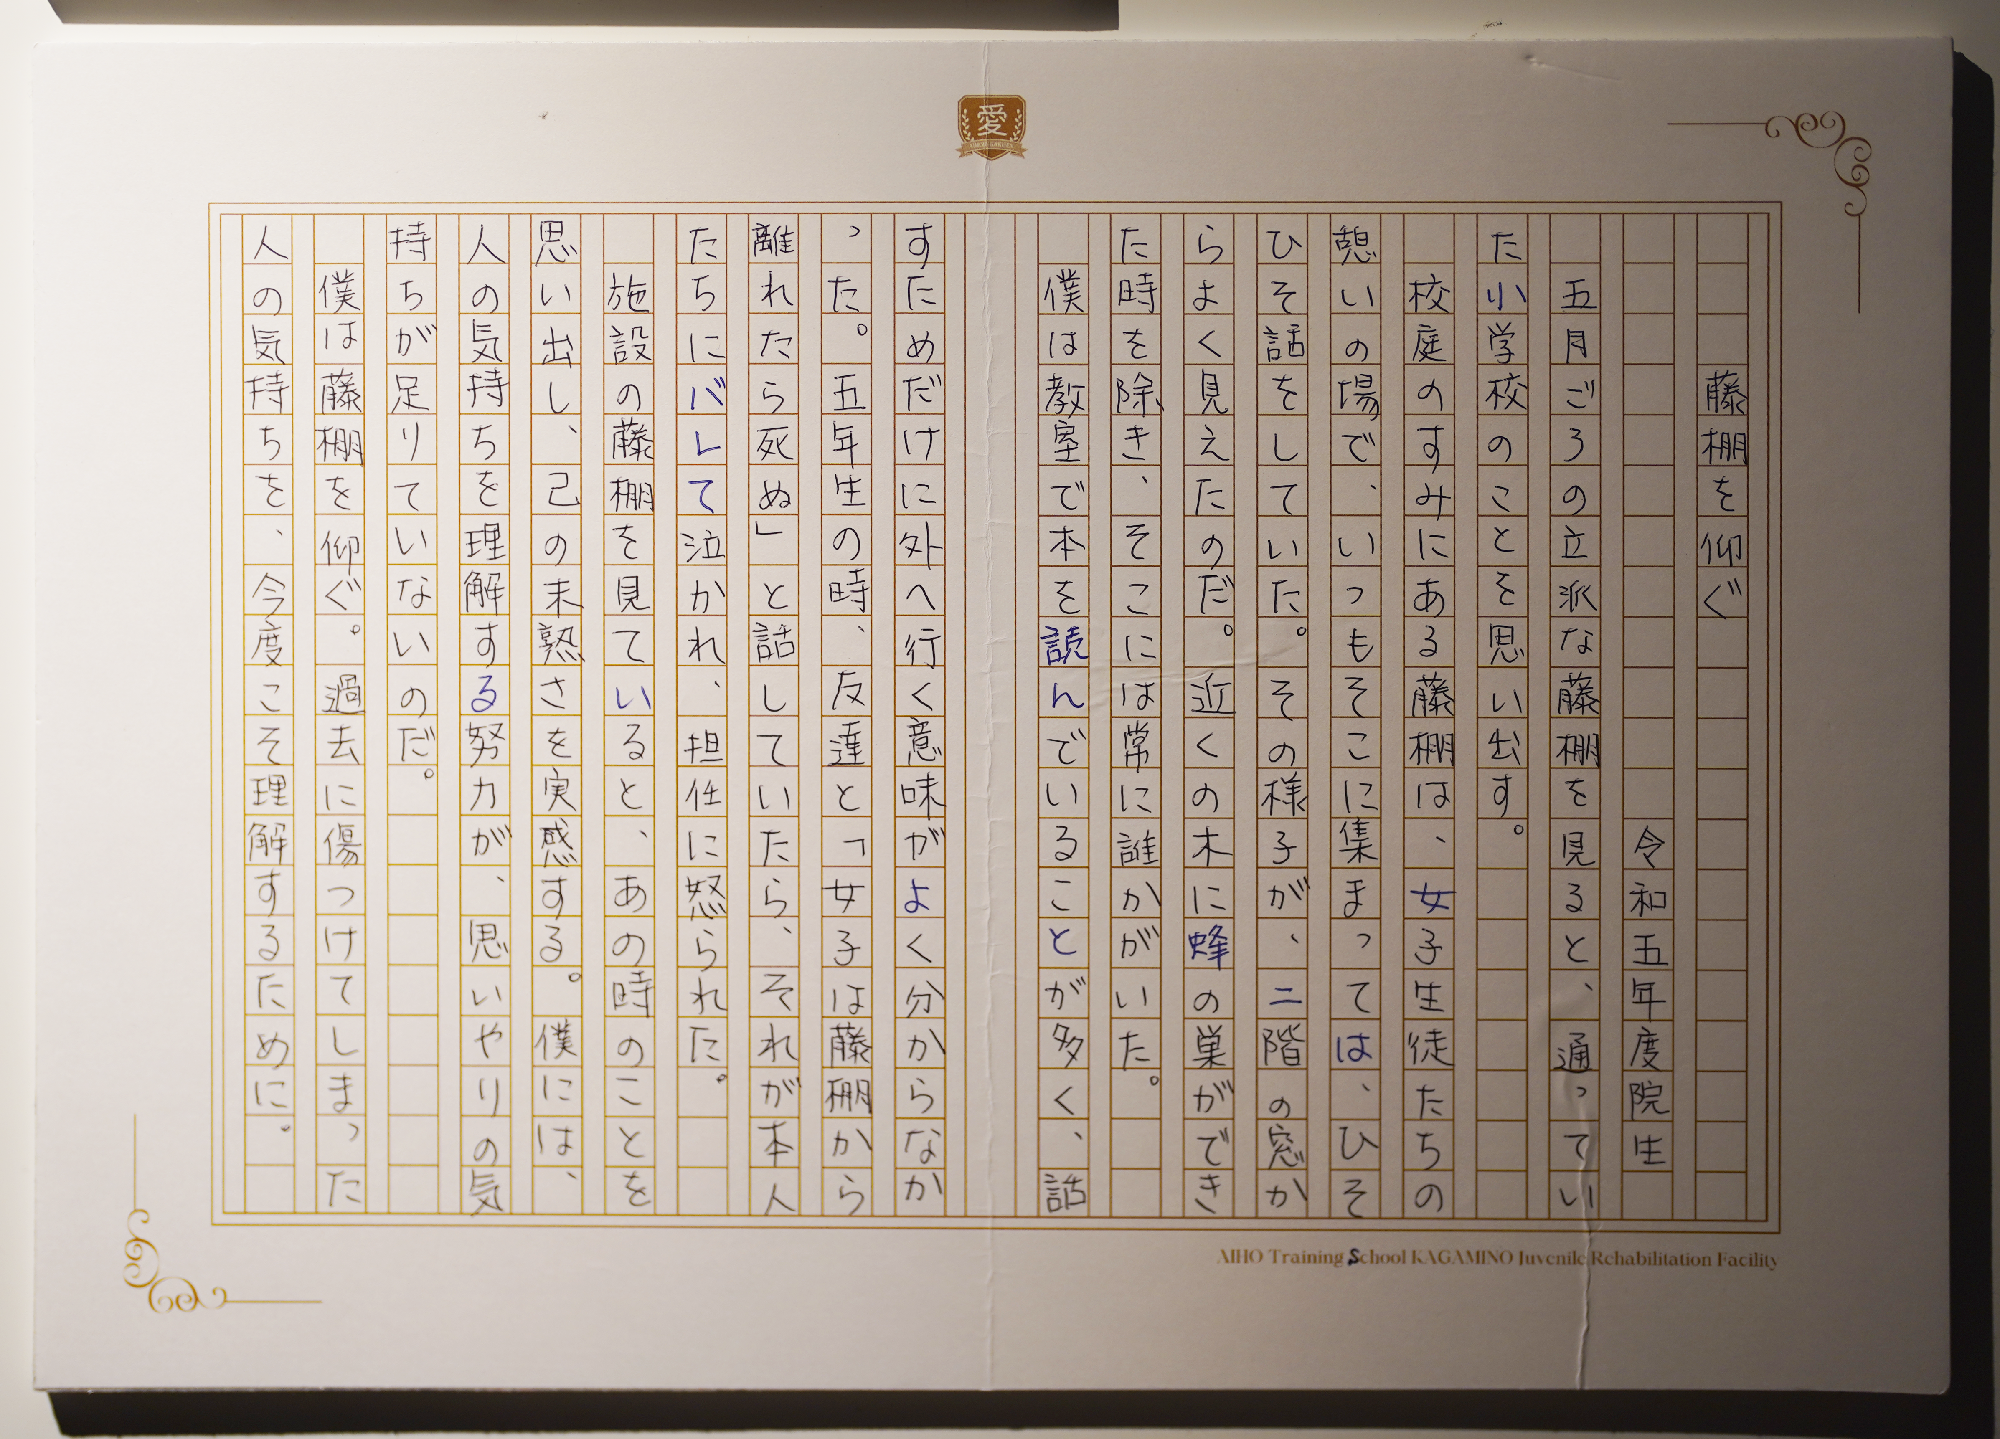 愛
藤棚を仰ぐ
令和五年度院生
五月ごろの立派な藤棚を見ると、通ってい
た小学校のことを思い出す。
校庭のすみにある藤棚は、女子生徒たちの
憩いの場で、いつもそこに集まっては、ひそ
ひそ話をしていた。その様子が、二階の窓か
らよく見えたのだ。近くの木に蜂の巣ができ
た時を除き、そこには常に誰かがいた。
僕は教室で本を読んでいることが多く、話
すためだけに外へ行く意味がよく分からなか
った。五年生の時、友達と「女子は藤棚から
離れたら死ぬ」と話していたら、それが本人
たちにバレて泣かれ、担任に怒られた。
施設の藤棚を見ていると、あの時のことを
思い出し、己の未熟さを実感する。僕には、
人の気持ちを理解する努力が、思いやりの気
持ちが足りていないのだ。
僕は藤棚を仰ぐ。過去に傷つけてしまった
人の気持ちを、今度こそ理解するために。
AIHO Training School KAGAMINO Juvenile Rehabilitation Facility